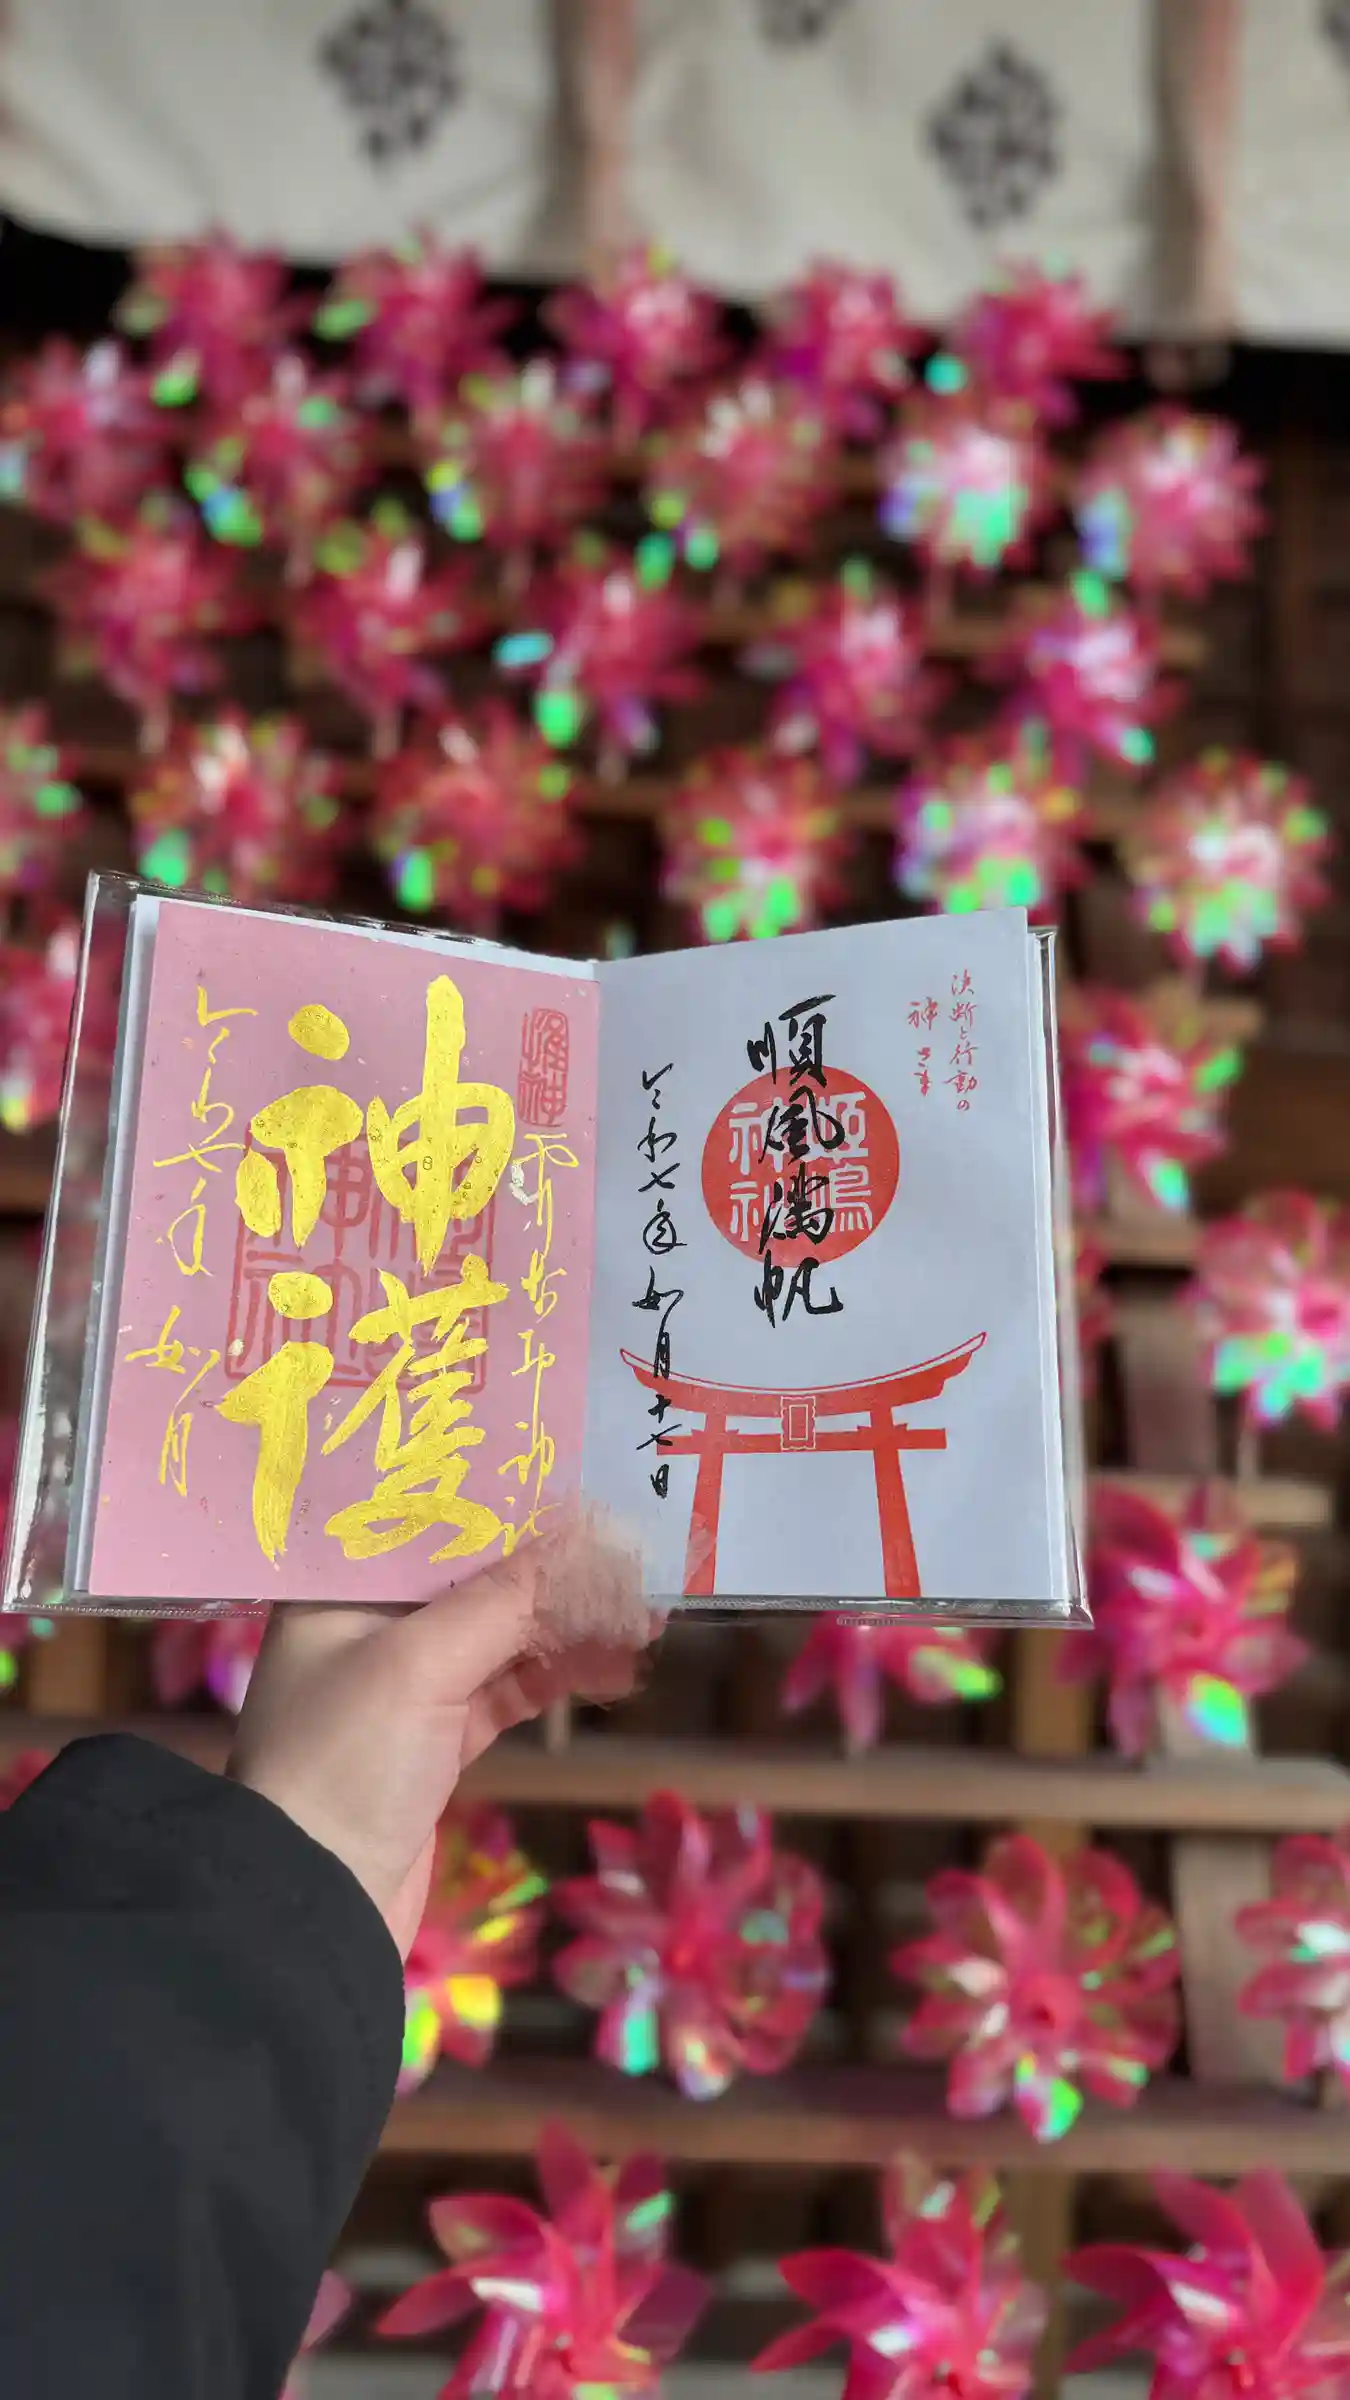 決断と行動の
神さま
順風満帆
姫嶋
神社
令和七年如月十七日
神護
令和七年 如月